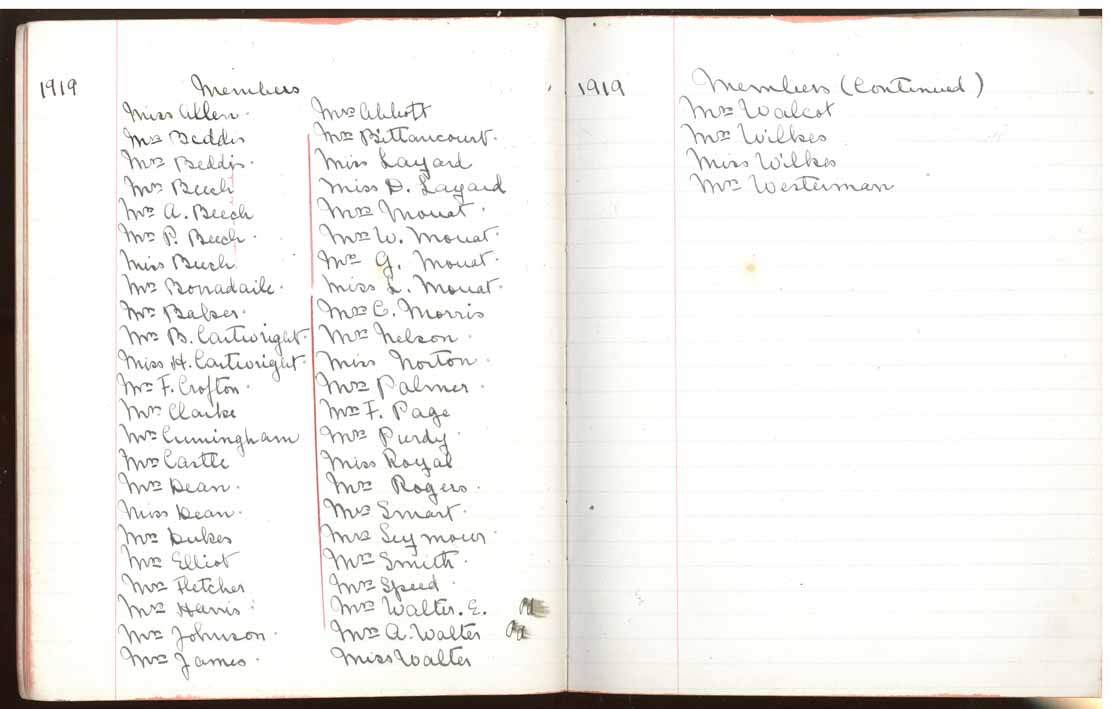 1919
Members
Miss Allen.
Mrs Beddis
Mrs Beddis.
Mrs Beech
Mrs A. Beech
Mrs P. Beech.
Miss Beech
Mrs Bonadaile.
Mrs Baker.
Mrs B. Cartwright.
Miss H. Cartwright.
Mrs F. Crofton.
Mrs Clarke
Mrs Cuningham
Mrs Castle
Mrs Dean.
Miss Dean.
Mrs Dukes
Mrs Elliot
Mrs Fletcher
Mrs Harris.
Mrs Johnson.
Mrs James.
Mrs Abbott
Mrs Bittancourt.
Miss Layard
Miss D. Layard
Mrs Mouat.
Mrs W. Mouat.
Mrs G. Mouat.
Miss L. Mouat.
Mrs C. Morris
Mrs Nelson.
Miss Norton.
Mrs Palmer.
Mrs F. Page
Mrs Purdy.
Miss Royal
Mrs Rogers.
Mrs Smart.
Mrs Seymour.
Mrs Smith.
Mrs Speed.
Mrs Walter. E.
Mrs A. Walter
Miss Walter
1919
Members (Continued)
Mrs Walcot
Mrs Wilkes
Miss Wilkes
Mrs Westerman